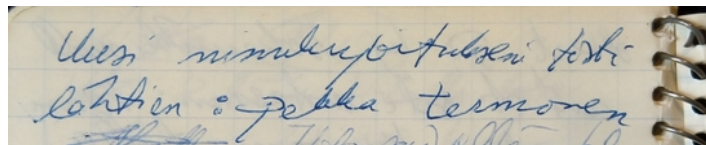 Uusi nimikirjoitukseni tästä
lähtien : Pekka Termonen